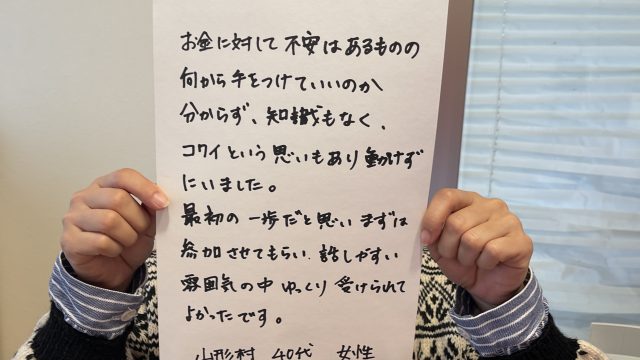 お金に対して不安はあるものの
何から手をつけていいのか
分からず、知識もなく、
コワイという思いもあり動けず
にいました。
最初の一歩だと思いまずは
参加させてもらい、話しやすい
雰囲気の中ゆっくり受けられて
よかったです。
山形村 40代 女性